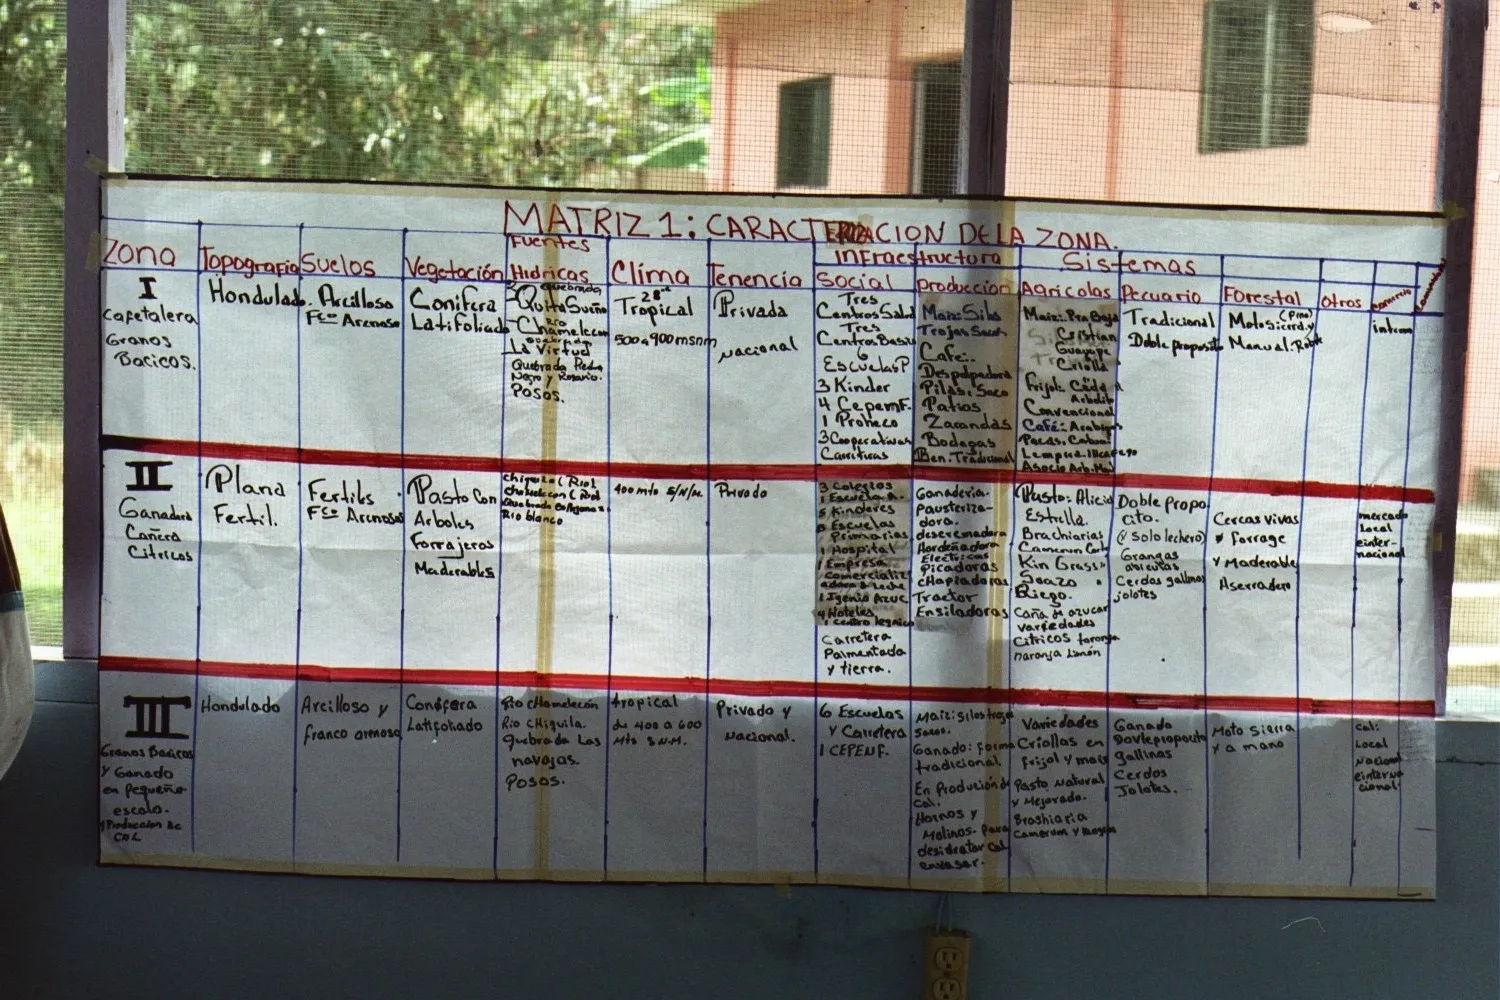 MATRIZ 1: CARACTERIZACION DE LA ZONA.
Zona
Topografia
Suelos
Vegetación
Fuentes
Hidricas
Clima
Tenencia
Infraestructura
Social
producción
Sistemas
Agricolas
Pecuario
Forestal
otros
I
Cafetalera
Granos
Bacicos.
Hondulado.
Arcilloso
Fco Arenoso
Conifera
Latifoliado
quebrada
Quita Sueño
Rio
Chamelecon
quebrada
La Virtud
Quebrada Piedra
Negro y Rosario.
Posos.
28°
Tropical
500 a 900 msnm
Privada
Nacional
Tres
Centros Salud
Tres
Centro Basic
6
Escuelas P
3 Kinder
4 CepenF.
1 Proheco
3 Cooperativas
Carriteras
Maiz: Silo
Trojas Sacos
Café:
Despolpadora
Pilas: Saco
Patios
Zarandas
Bodegas
Ben. Tradicional
Maiz:
Cristian
Guayape
Criollo
Frijol:
Convencional
Café:
Lempira
Tradicional
Doble proposito
(Pino)
Motosierra y
Manual.
II
Ganadera
Cañera
Citricos
Plana
Fertil.
Fertiles
Fco Arenoso
Pasto Con
Arboles
Forrajeros
Maderables
Rio blanco
400 mts S/N/M.
Privado
3 Colegios
1 Escuela A.
5 Kinderes
8 Escuelas
Primarias
1 Hospital
1 Empresa
Comercializ
adora de Leche
4 Hoteles
1 centro tegnico
Carretera
Palmentada
y tierra.
Ganaderia.
Pausteriza-
dora.
desceremadora
Hordeñadora
Electricas
Picadoras
cHapiadoras
Tractor
Ensiladoras
Pasto: Alicia
Estrella.
Brachiarias
Cameron
Kin Grass
Riego.
Caña de azucar
variedades
Citricos toronja
naranja Limón
Doble propo
cito.
(2 solo lechero)
Grangas
Cerdos gallinas
jolotes
Cercas vivas
Forrage
y Maderable
Aserradero
mercado
Local
einter-
nacional
III
Granos Bacicos
y Ganado
en pequeña
escala.
y Produccion de
CAL
Hondulado
Arcilloso y
franco arenoso
Conifera
Latifoliado
Rio cHamelecón
Rio cHiquila.
Quebrada Las
navajas.
Posos.
tropical
de 400 a 600
Mts S.N.M.
Privado y
Nacional.
6 Escuelas
y Carretera
1 CEPENF.
Maiz: silos troja
Sacos.
Ganado: forma
tradicional
En Producion de
Cal.
Hornos y
Molinos. Para
desidratar Cal
envasar.
Variedades
Criollas en
frijol y maiz
Pasto Natural
y Mejorado.
Brashiaria
Ganado
Dovleproposito
gallinas
Cerdos
Jolotes.
Moto Sierra
y a mano
Cal:
Local
Nacional
einterna
cional